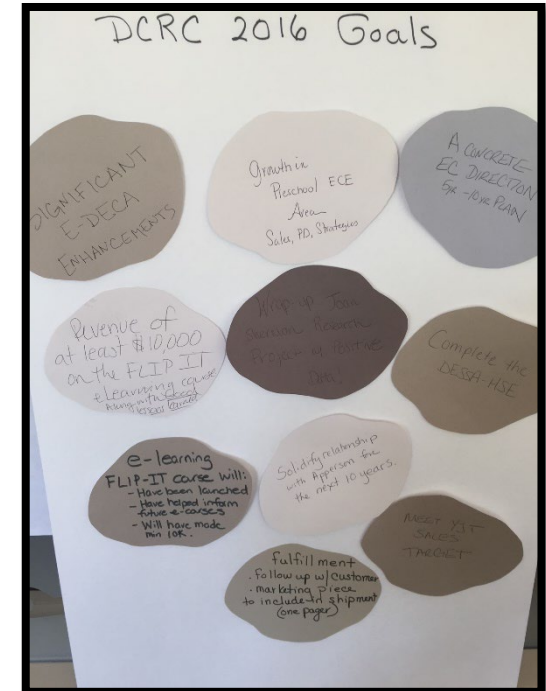 DCRC 2016 Goals
SIGNIFICANT
E-DECA
ENHANCEMENTS
Growth in
Preschool ECE
Area
Sales, PD, Strategies
A CONCRETE
EC DIRECTION
5yr -10yr PLAN
Revenue of
at least $10,000
on the FLIP IT
eLearning course
along with good
Wrap-up
Research
Project w/ Positive
Complete the
DESSA-HSE
e-learning
FLIP-IT course will:
- Have been launched
- Have helped inform
future e-courses
- Will have made
min 10K.
Solidify relationship
with Apperson for
the next 10 years.
MEET YST
SALES
TARGET
fulfillment
. follow up w/ customer
. marketing piece
to include in shipment
(one pager)